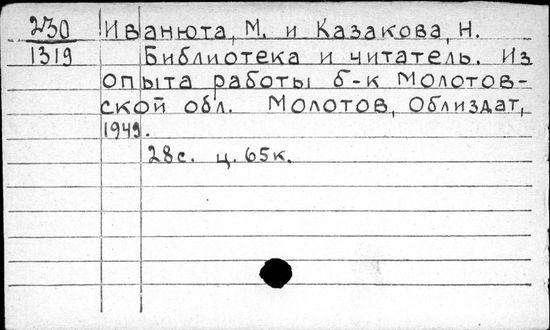 230 Иванюта, М. и Казакова, Н.
1319 Библиотека и читатель. Из
опыта работы б-к Молотов-
ской обл. Молотов, Облиздат,
1949.
28с. ц. 65к.